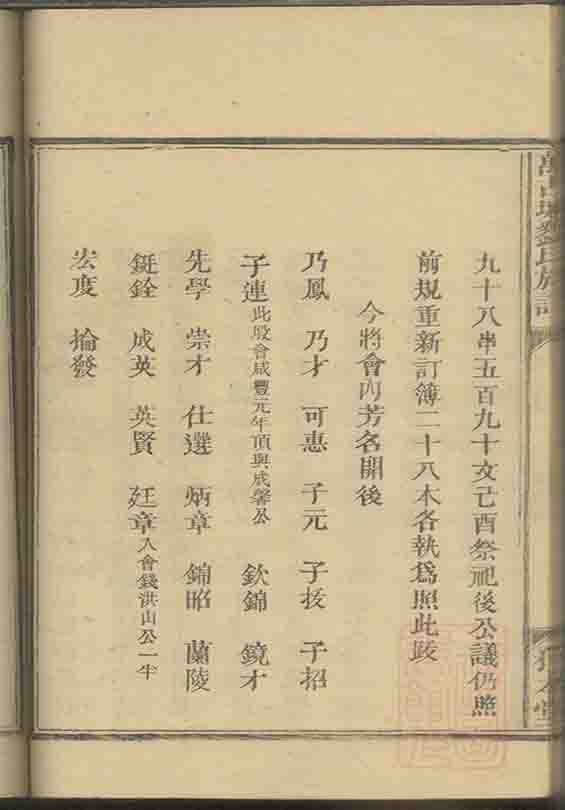 九十八串五百九十文己酉祭祀後公議仍照
前規重新訂簿二十八本各執爲照此啟
今將會內芳名開後
乃鳳 乃才 可惠 子元 子拔 子招
子連此股會咸豐元年頂與成馨公 欽錦 鏡才
先學 崇才 仕選 炳章 錦昭 蘭陵
鋌銓 成英 英賢 廷章入會錢洪山公一半
宏度 掄發